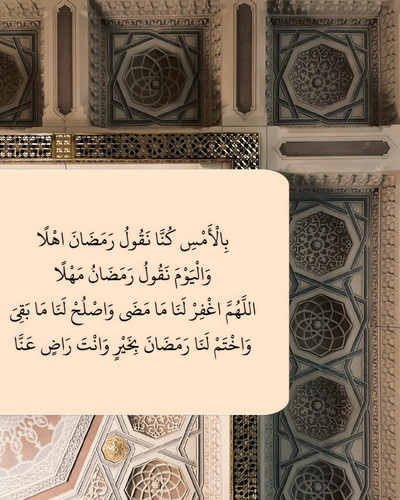 بِالْأَمْسِ كُنَّا نَقُولُ رَمَضَانَ اهْلًا
وَالْيَوْمَ نَقُولُ رَمَضَانُ مَهْلًا
اللَّهُمَّ اغْفِرْ لَنَا مَا مَضَى وَاصْلُحْ لَنَا مَا بَقِىَ
وَاخْتَمْ لَنَا رَمَضَانَ بِخَيْرٍ وَانْتَ رَاضٍ عَنَّا